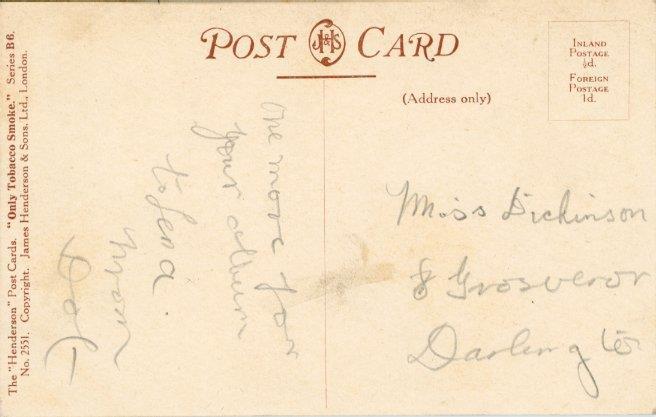 POST JHS CARD
INLAND
POSTAGE
½d.
FOREIGN
POSTAGE
1d.
(Address only)
The "Henderson" Post Cards. "Only Tobacco Smoke." Series B6.
No. 2551. Copyright. James Henderson & Sons, Ltd., London.
One more for
your album
from
Miss Dickinson
8 Grosvenor
Darlington